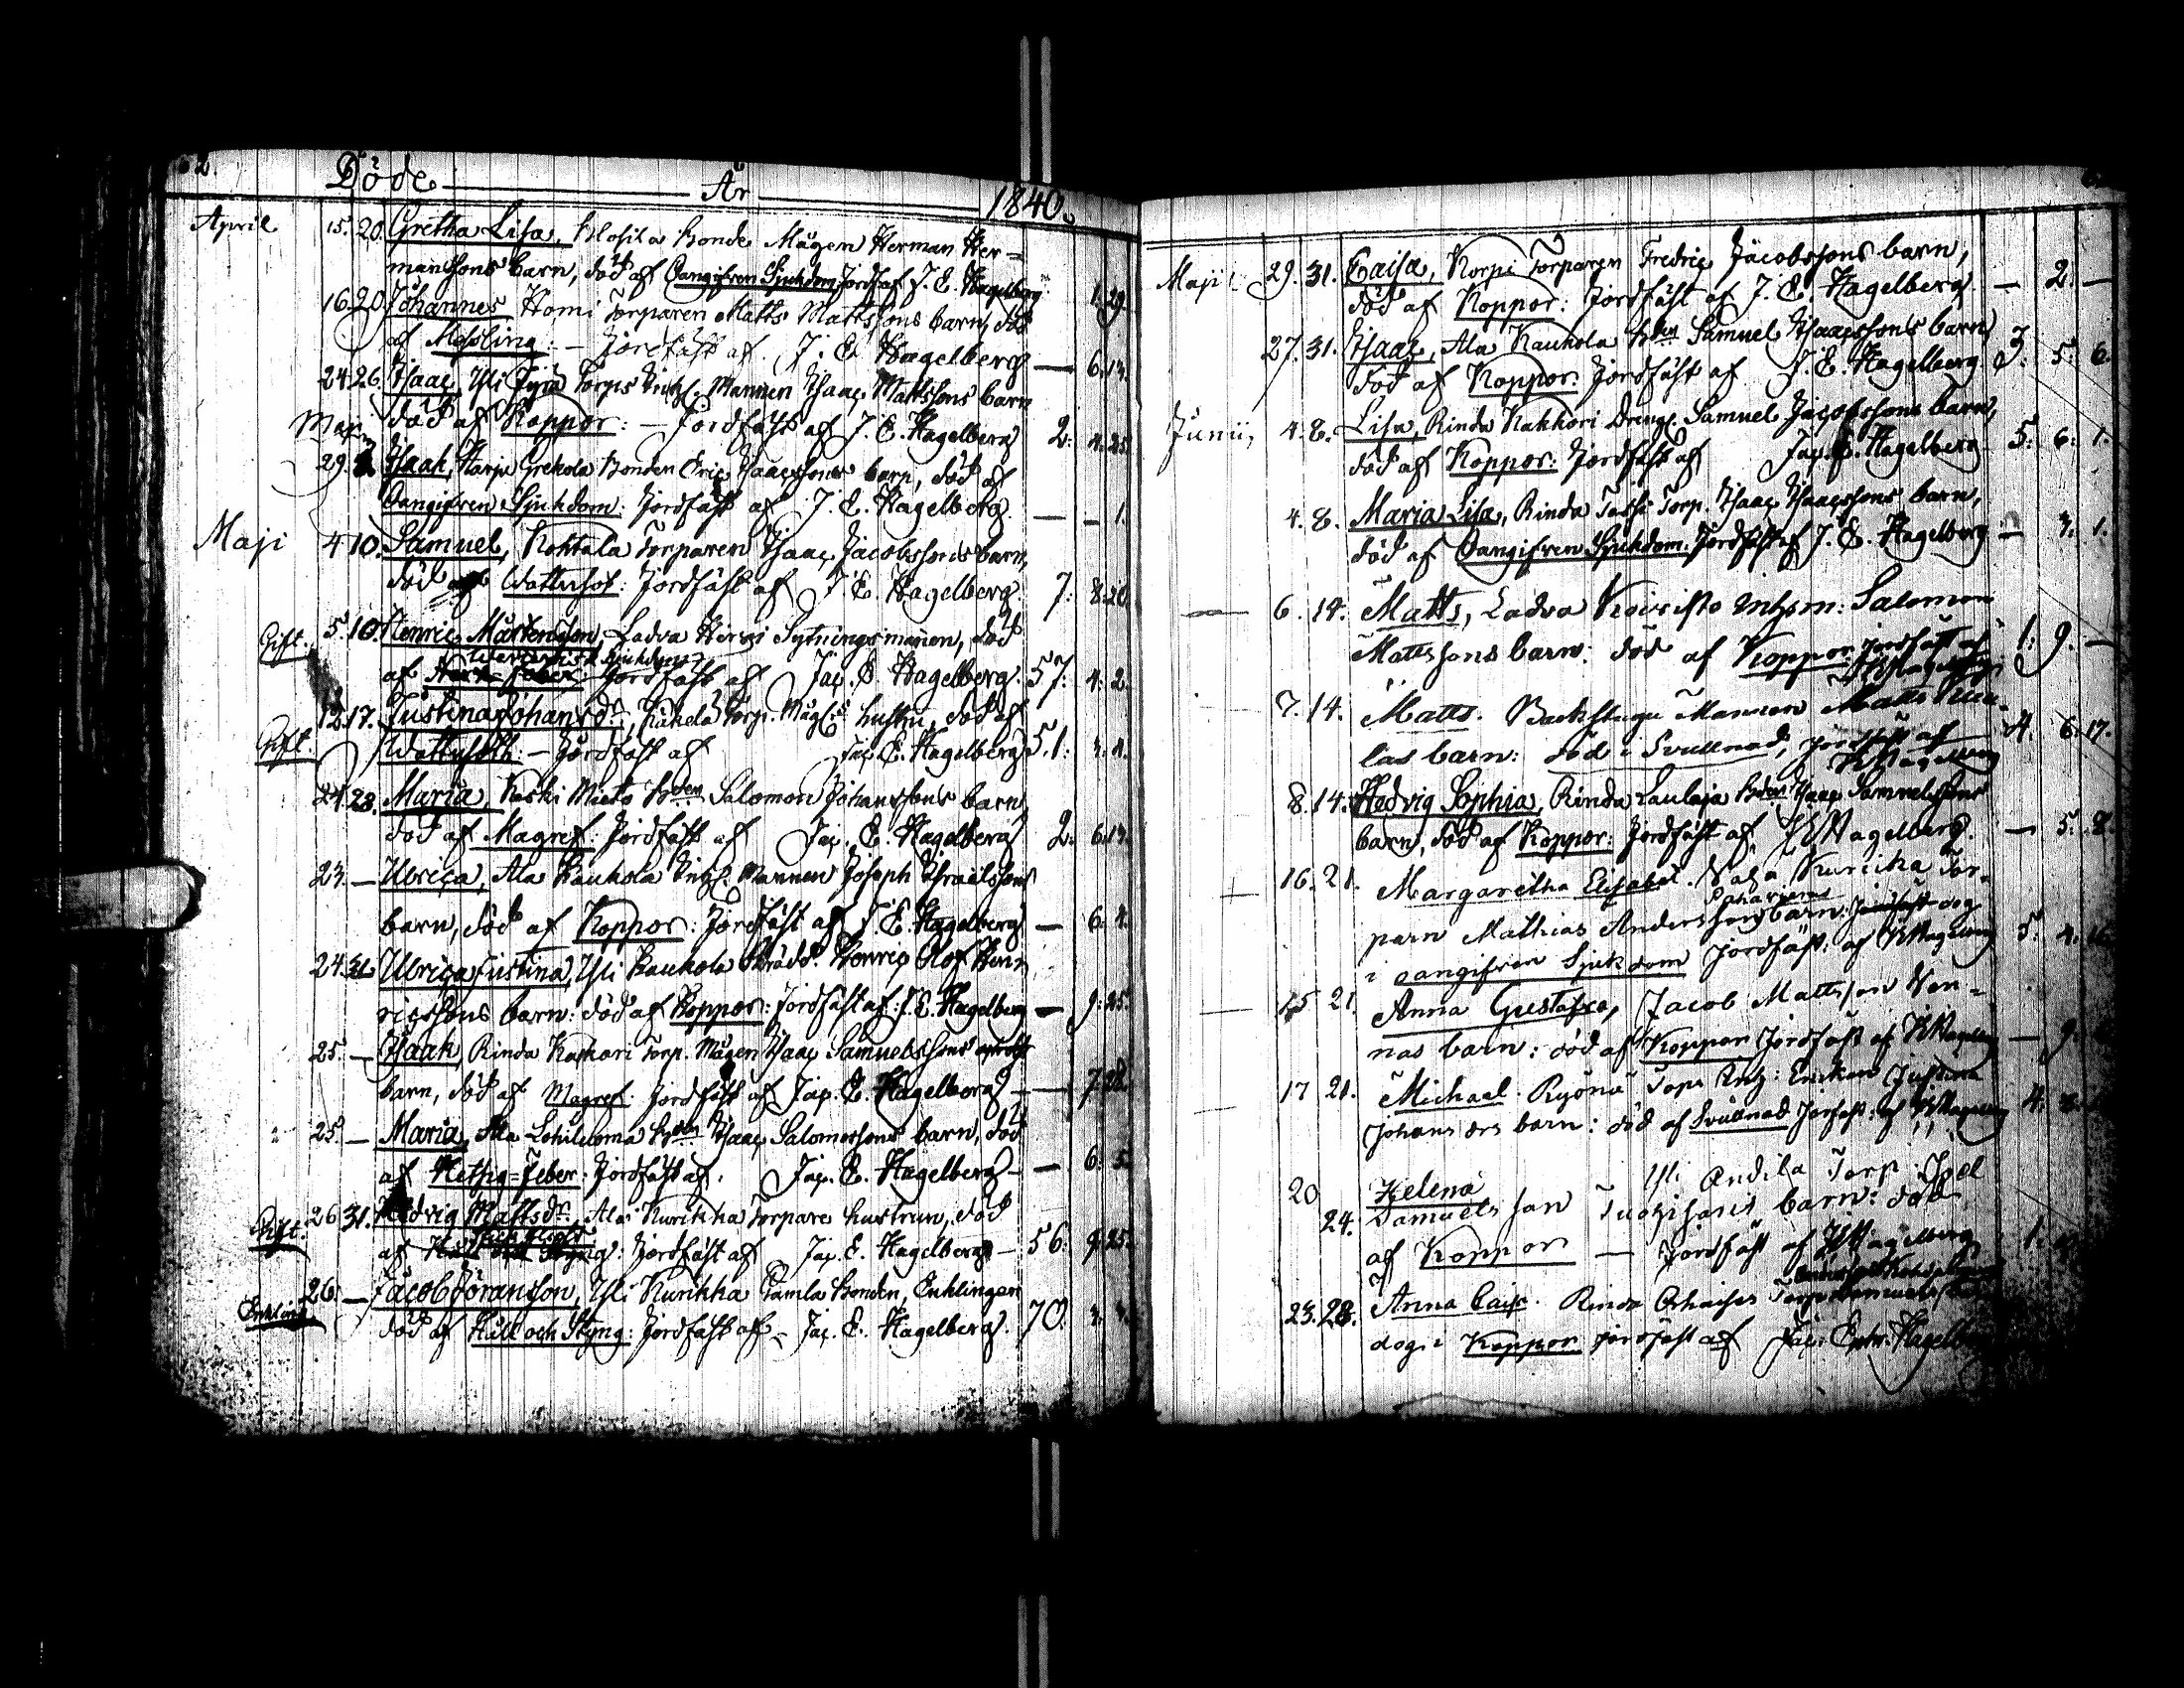 Döde År 1840.
April 15. 20. Gretha Lisa, Klosila Bonde Mågen Herman Her-
mansons barn, död af Oangifven Sjukdom Jordf. af J. E. Hagelberg 1. 29.
16. 20. Johannes Homi Torparen Matts Mattssons barn, död
af Messling: — Jordfäst af J. E. Hagelberg — 6. 14.
24. 26. Isaac, Yli Torps Inhs. Mannen Isaac Mattssons barn
död af Koppor: — Jordfäst af J. E. Hagelberg 2: 4. 25.
Maji
29. Isaak, Harju Grekola Bonden Eric Isaacssons barn, död af
Oangifven Sjukdom: Jordfäst af J. E. Hagelberg. — — 1.
Maji 4. 10. Samuel, Kohtala Torparen Isaac Jacobssons barn,
död af Wattusot: Jordfäst af J. E. Hagelberg. 7: 8. 20.
Gift. 5. 10. Henric Mårtensson, Ladva Sytningsmannen, död
af Jordfäst af Jac. E. Hagelberg. 57: 4. 2.
Gift. 12. 17. Justina Johansdr., Torp. Mågens hustru, död af
Wattusoth: — Jordfäst af Jac. E. Hagelberg 51: 4.
21. 23. Maria, Koski Mieto Bden Salomon Johanssons barn,
död af Magref: Jordfäst af Jac. E. Hagelberg 2. 6. 14.
23. — Ulrica, Ala Kauhola Inhs. Mannen Joseph Israelssons
barn, död af Koppor: Jordfäst af J. E. Hagelberg — 6. 4.
24. 31. Ulrica Justina, Yli Kauhola Henric Olof Hen-
ricssons barn: död af Koppor: Jordfäst af: J. E. Hagelberg — 9: 25.
25. — Isaak, Rinda Torp. Mågen Isaac Samuelssons
barn, död af Magref. Jordfäst af Jac. E. Hagelberg — — 7. 28.
25. — Maria, Ala Lohiluoma Bden Isaac Salomossons barn, död
af Hetsig-Feber: Jordfäst af. Jac. E. Hagelberg — — 6. 5.
Gift. 26. 31. Hedvig Mattsdr. Ala Kurikka Torpare hustrun, död
af Jordfäst af Jac. E. Hagelberg — 56: 9. 25.
Enkling 26. — Jacob Jöransson, Yli Kurikka Gamla Bonden, Enklingen
död af Håll och Styng: Jordfäst af Jac. E. Hagelberg. 70.
Maji 29. 31. Caisa, Korpi Torparen Fredric Jacobssons barn,
död af Koppor: Jordfäst af J. E. Hagelberg — 2. —
27. 31. Isaac, Ala Kauhola Bden Samuel Isaacssons barn
död af Koppor: Jordfäst af J. E. Hagelberg 3. 5. 6.
Junii, 4. 8. Lisa, Rinda Kakkori Drengs. Samuel Jacobssons barn,
död af Koppor: Jordfäst af Jac. E. Hagelberg 5: 6: 1.
4. 8. Maria Lisa, Rinda Torp. Isaac Isaacssons barn,
död af Oangifven Sjukdom. Jordfäst af J. E. Hagelberg — 4. 1.
— 6. 14. Matts, Ladva Koivisto Inhsm: Salomon
Mattssons barn: död af Koppor jordfäst af 1: 9. —
7. 14. Matts. Backstugu Mannen Matts
las barn: död i Svullnad, jordfäst af 4. 6. 17.
8. 14. Hedvig Sophia, Rinda Laulaja Bden Isaac Samuelssons
barn, död af Koppor: Jordfäst af JEHagelberg. — 5. 8.
16. 21. Margaretha Elisabet. Kurikka Tor-
parn Mathias Anderssons barn: dog
i oangifven Sjukdom Jordfäst: af 5. 4.
15 21. Anna Gustafva, Jacob Mattsson Hen-
nas barn: död af Koppor Jordfäst af — 9.
17 21. Michael. Ryönä Enkan Justina
Johans drs barn: död af Svullnad Jorfäst: af 4.
20 24. Helena Yli Andila Torp. Joel
Samuels son barn: död
af Koppor — jordfäst af JEHagelberg 1.
23. 28. Anna Caisa. Rinda
dog i Koppor jordfäst af Jac. Em. Hagelberg